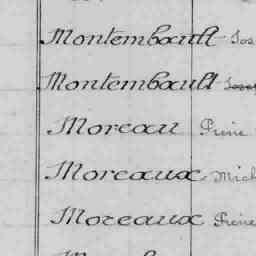 Montembault Jos
Montembault
Moreau Pierre
Moreaux Mich
Moreaux Pierre